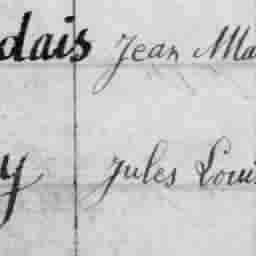 dais Jean Ma
y Jules Louis